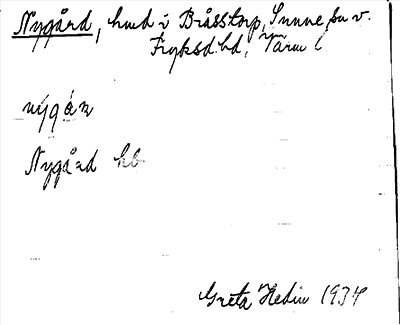 Nygård, hmd i Bråsstorp, Sunne sn v.
Fryksd. hd, Värml
nýgán
Nygård hb
Greta Hedin 1934